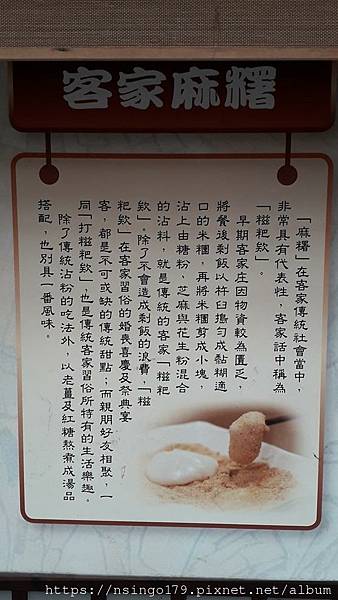 客家麻糬
「麻糬」在客家傳統社會當中，
非常具有代表性，客家話中稱為
「糍粑欸」。
早期客家庄因物資較為匱乏，
將餐後剩飯以杵臼搗勻成黏糊適
口的米糰，再將米糰剪成小塊，
沾上由糖粉，芝麻與花生粉混合
的沾料，就是傳統的客家「糍粑
欸」。除了不會造成剩飯的浪費，「糍
粑欸」在客家習俗的婚喪喜慶及祭典宴
客，都是不可或缺的傳統甜點；而親朋好友相聚，一
同「打糍粑欸」也是傳統客家習俗所特有的生活樂趣。
除了傳統沾粉的吃法外，以老薑及紅糖熬煮成湯品
搭配，也別具一番風味。
https://nsingo179.pixnet.net/album